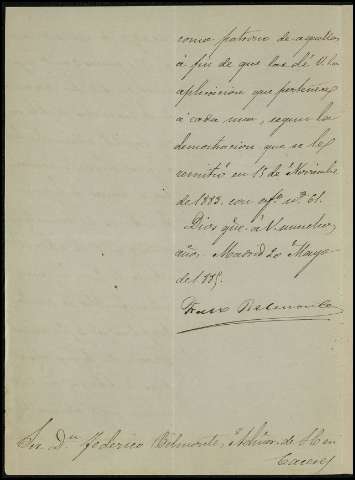 como patrono de aquellos
á fin de que las dé V. la
aplicacion que pertenece
á cada una, segun la
demostracion que se le
remitió en 13 de Noviembre
de 1883 con ofº nº 61.
Dios gue. á V. muchos
años. Madrid 20 Mayo
de 1885.
Belmonte
Sor. Dn. Federico Belmonte, Admor. de
Caceres